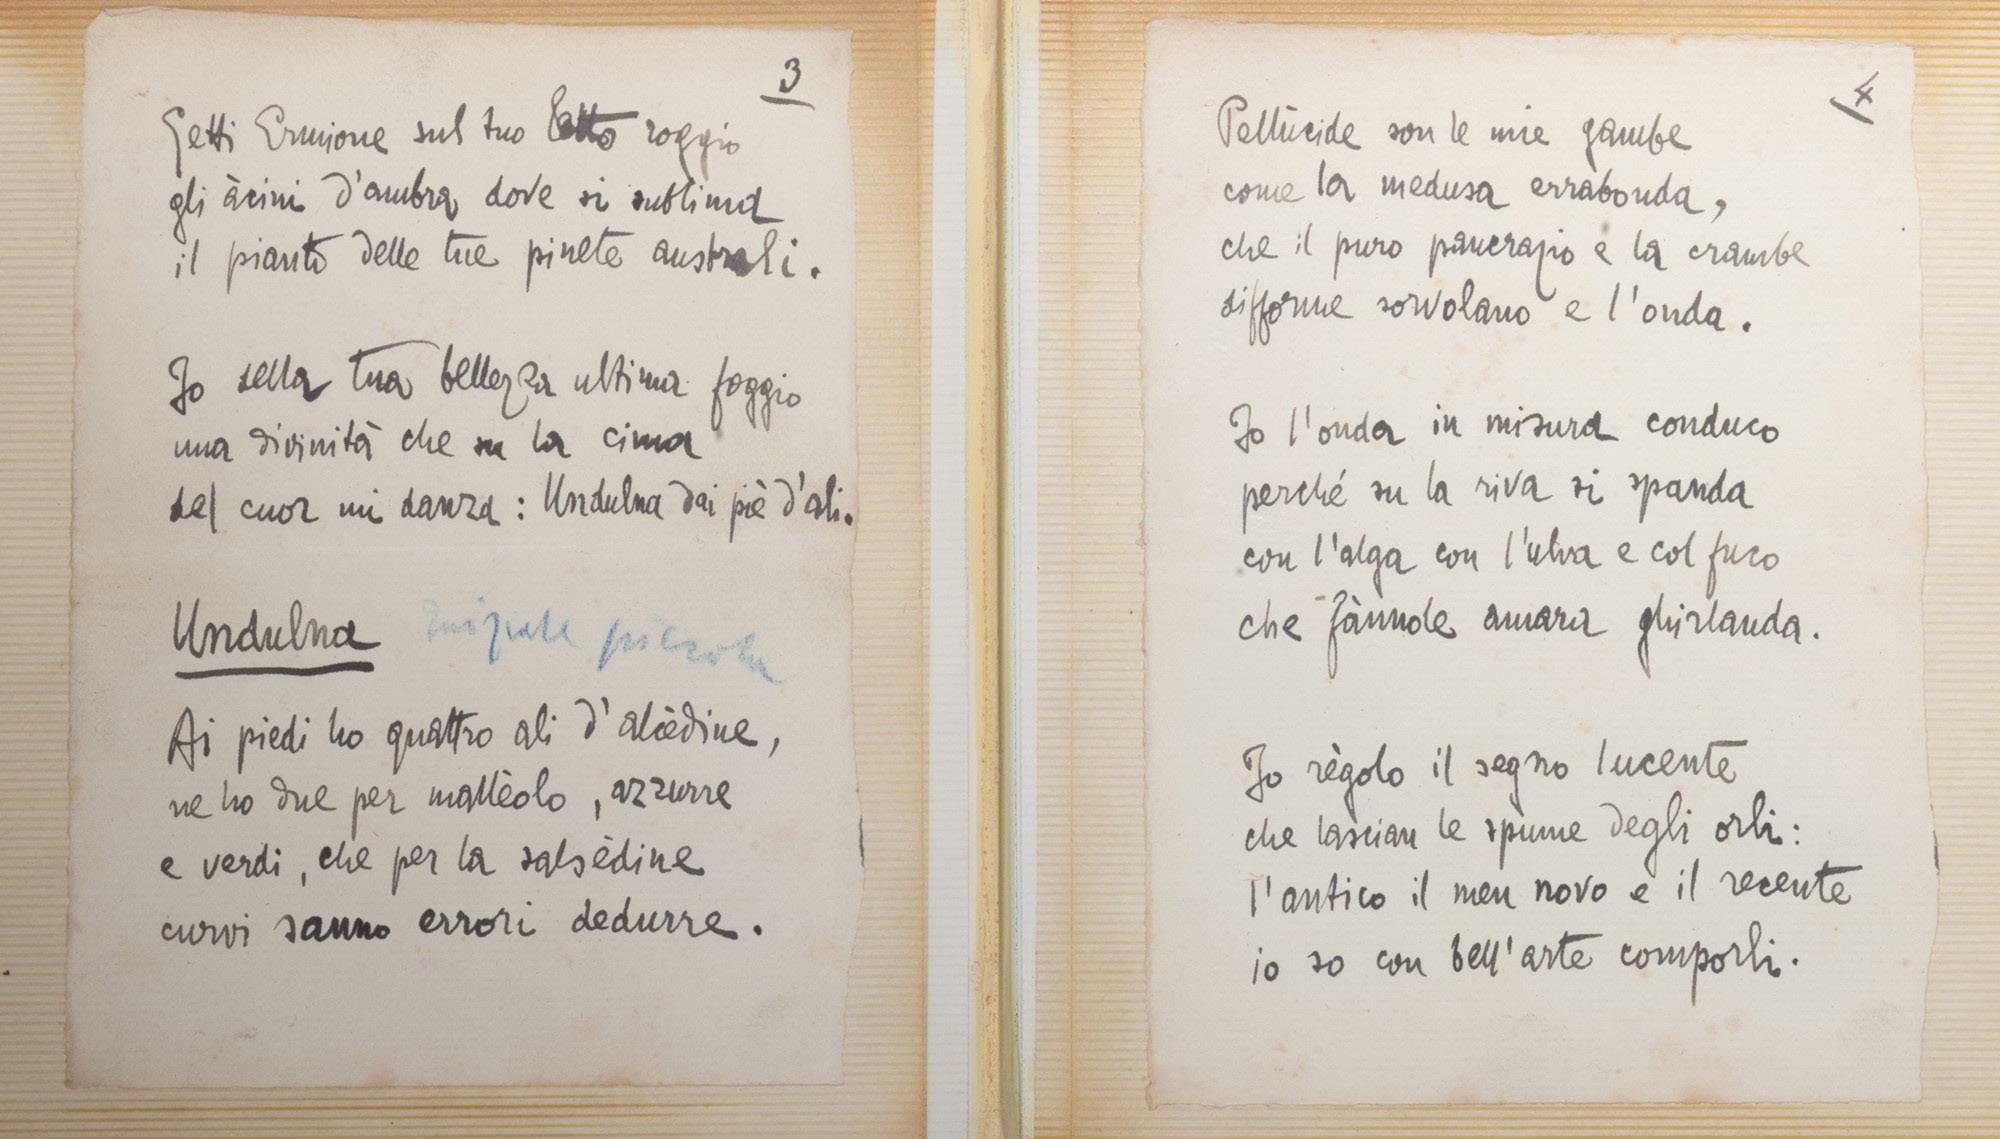 3
Getti Ermione sul tuo letto roggio
gli àcini d'ambra dove si sublima
il pianto delle tue pinete australi.
Io della tua bellezza ultima foggio
una divinità che su la cima
del cuor mi danza: Undulna dai piè d'ali.
Undulna
piccola
Ai piedi ho quattro ali d'alcèdine,
ne ho due per mallèolo, azzurre
e verdi, che per la salsèdine
curvi sanno errori dedurre.
4
Pellùcide son le mie gambe
come la medusa errabonda,
che il puro pancrazio e la crambe
difforme sorvolano e l'onda.
Io l'onda in misura conduco
perché su la riva si spanda
con l'alga con l'ulva e col fuco
che fànnole amara ghirlanda.
Io règolo il segno lucente
che lascian le spume degli orli:
l'antico il men novo e il recente
io so con bell'arte comporli.